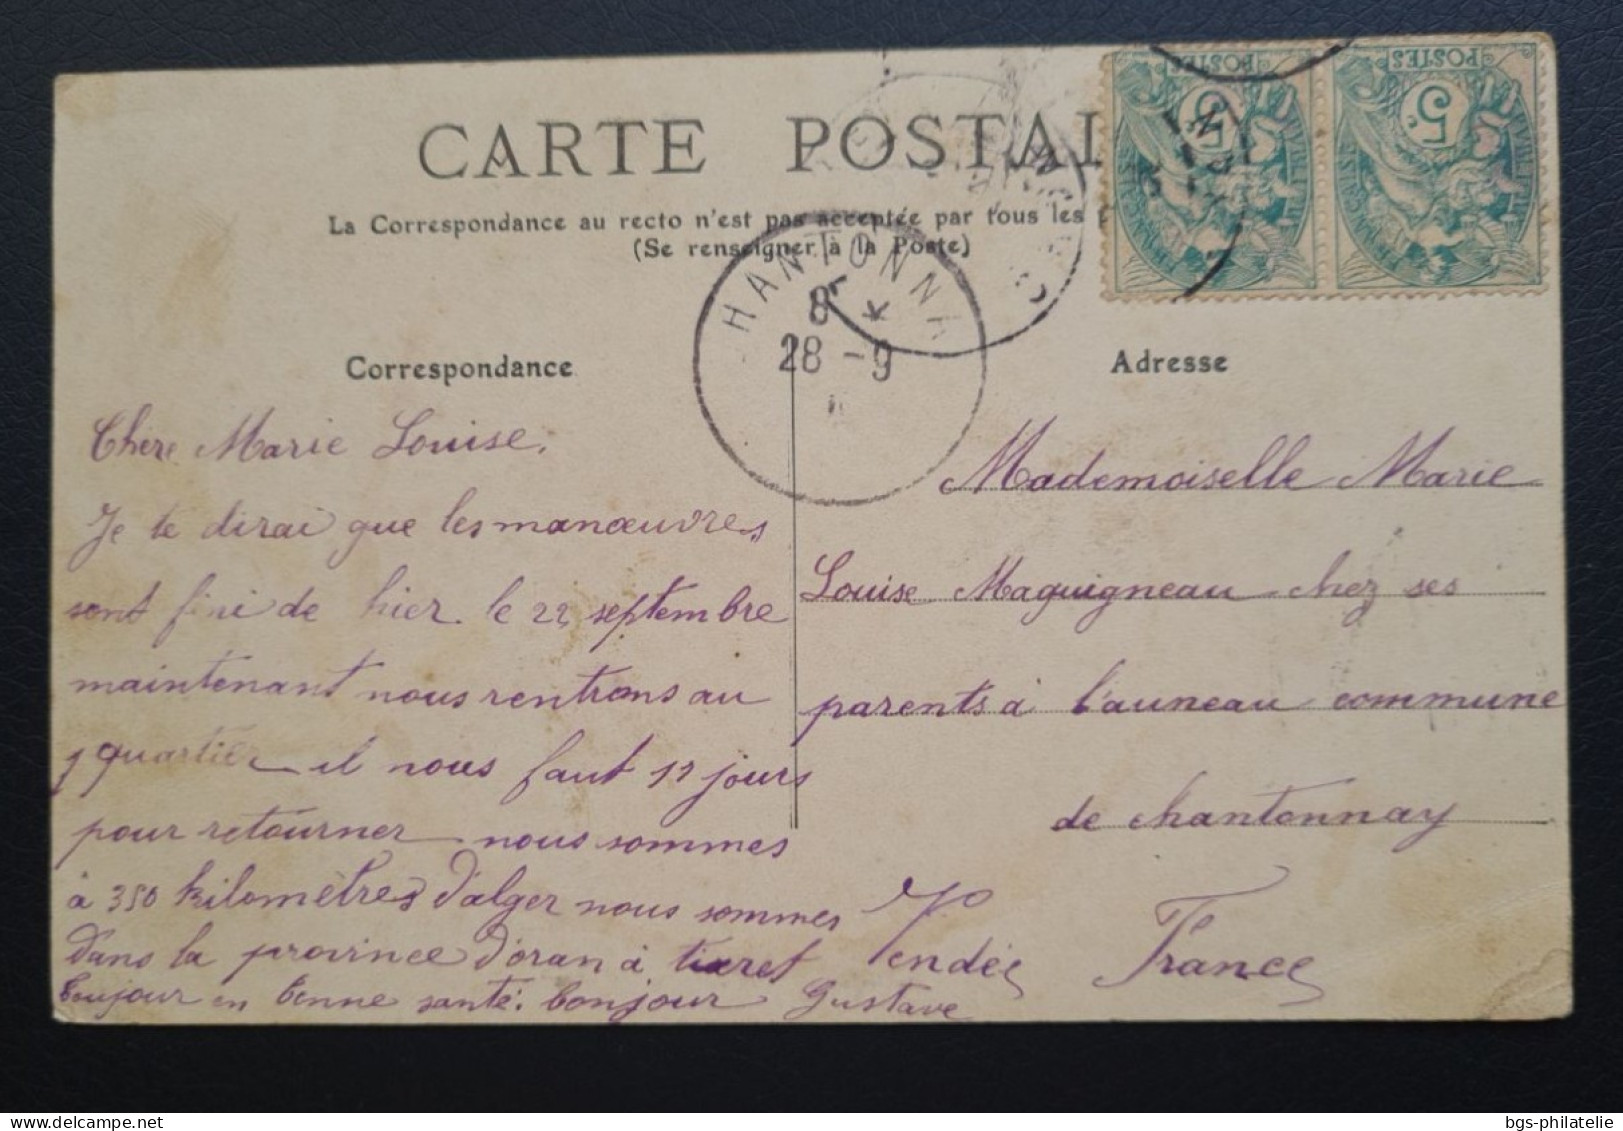 CARTE POSTAL
La Correspondance au recto n'est pas acceptée par tous les
(Se renseigner à la Poste)
POSTES
5c
POSTES
5c
HANTONNA
8
28 - 9
Correspondance
Chère Marie Louise.
Je te dirai que les manœuvres
sont fini de hier. le 22 septembre
maintenant nous rentrons au
quartier il nous faut 12 jours
pour retourner nous sommes
à 350 kilomètres d'alger nous sommes
dans la province d'oran à tiaret
toujour en bonne santé. bonjour Gustave
Adresse
Mademoiselle Marie
Louise Maquigneau chez ses
parents à l'auneau commune
de chantonnay
Vendée France
bgs-philatelie